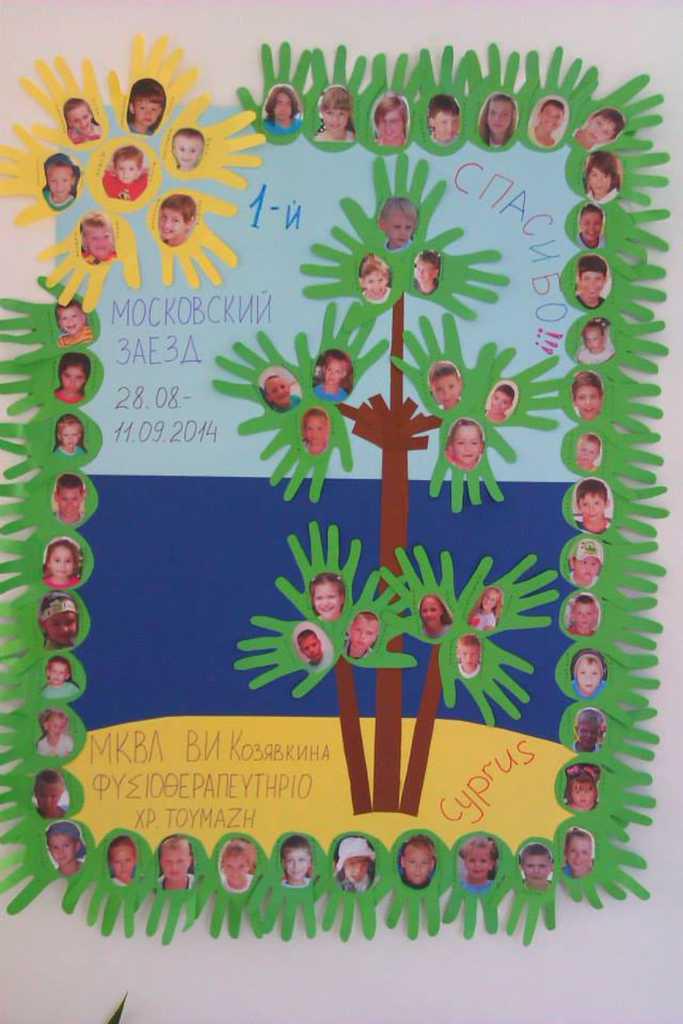 1-й
СПАСИБО!!!
МОСКОВСКИЙ
ЗАЕЗД
28.08.-
11.09.2014
МКВЛ ВИ Козявкина
ΦΥΣΙΟΘΕΡΑΠΕΥΤΗΡΙΟ
ΧΡ. ΤΟΥΜΑΖΗ
Cyprus